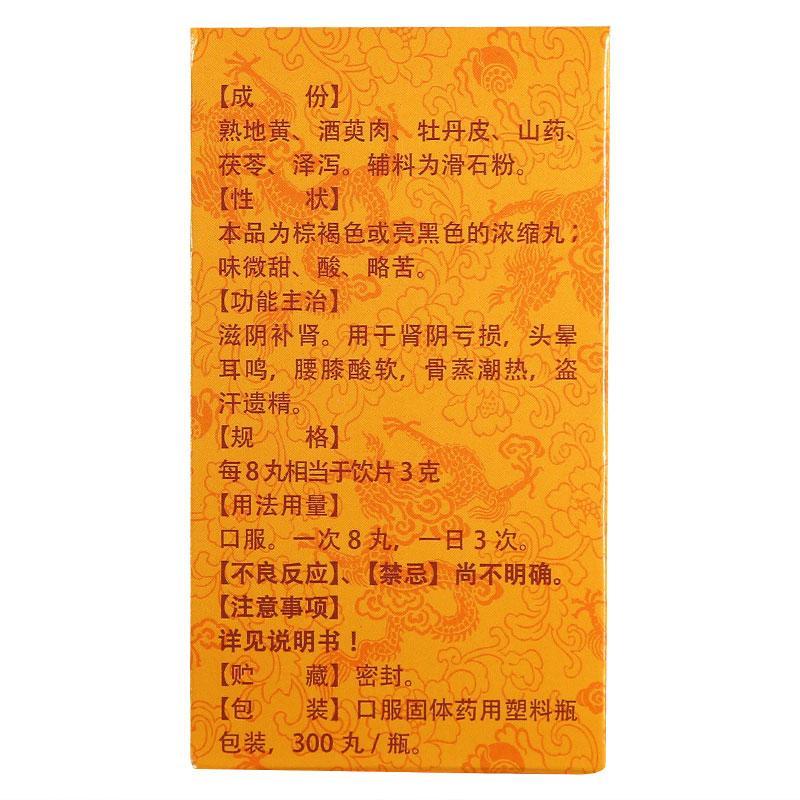 【成　份】
熟地黄、酒萸肉、牡丹皮、山药、
茯苓、泽泻。辅料为滑石粉。
【性　状】
本品为棕褐色或亮黑色的浓缩丸；
味微甜、酸、略苦。
【功能主治】
滋阴补肾。用于肾阴亏损，头晕
耳鸣，腰膝酸软，骨蒸潮热，盗
汗遗精。
【规　格】
每8丸相当于饮片3克
【用法用量】
口服。一次8丸，一日3次。
【不良反应】、【禁忌】尚不明确。
【注意事项】
详见说明书！
【贮　藏】密封。
【包　装】口服固体药用塑料瓶
包装，300丸/瓶。